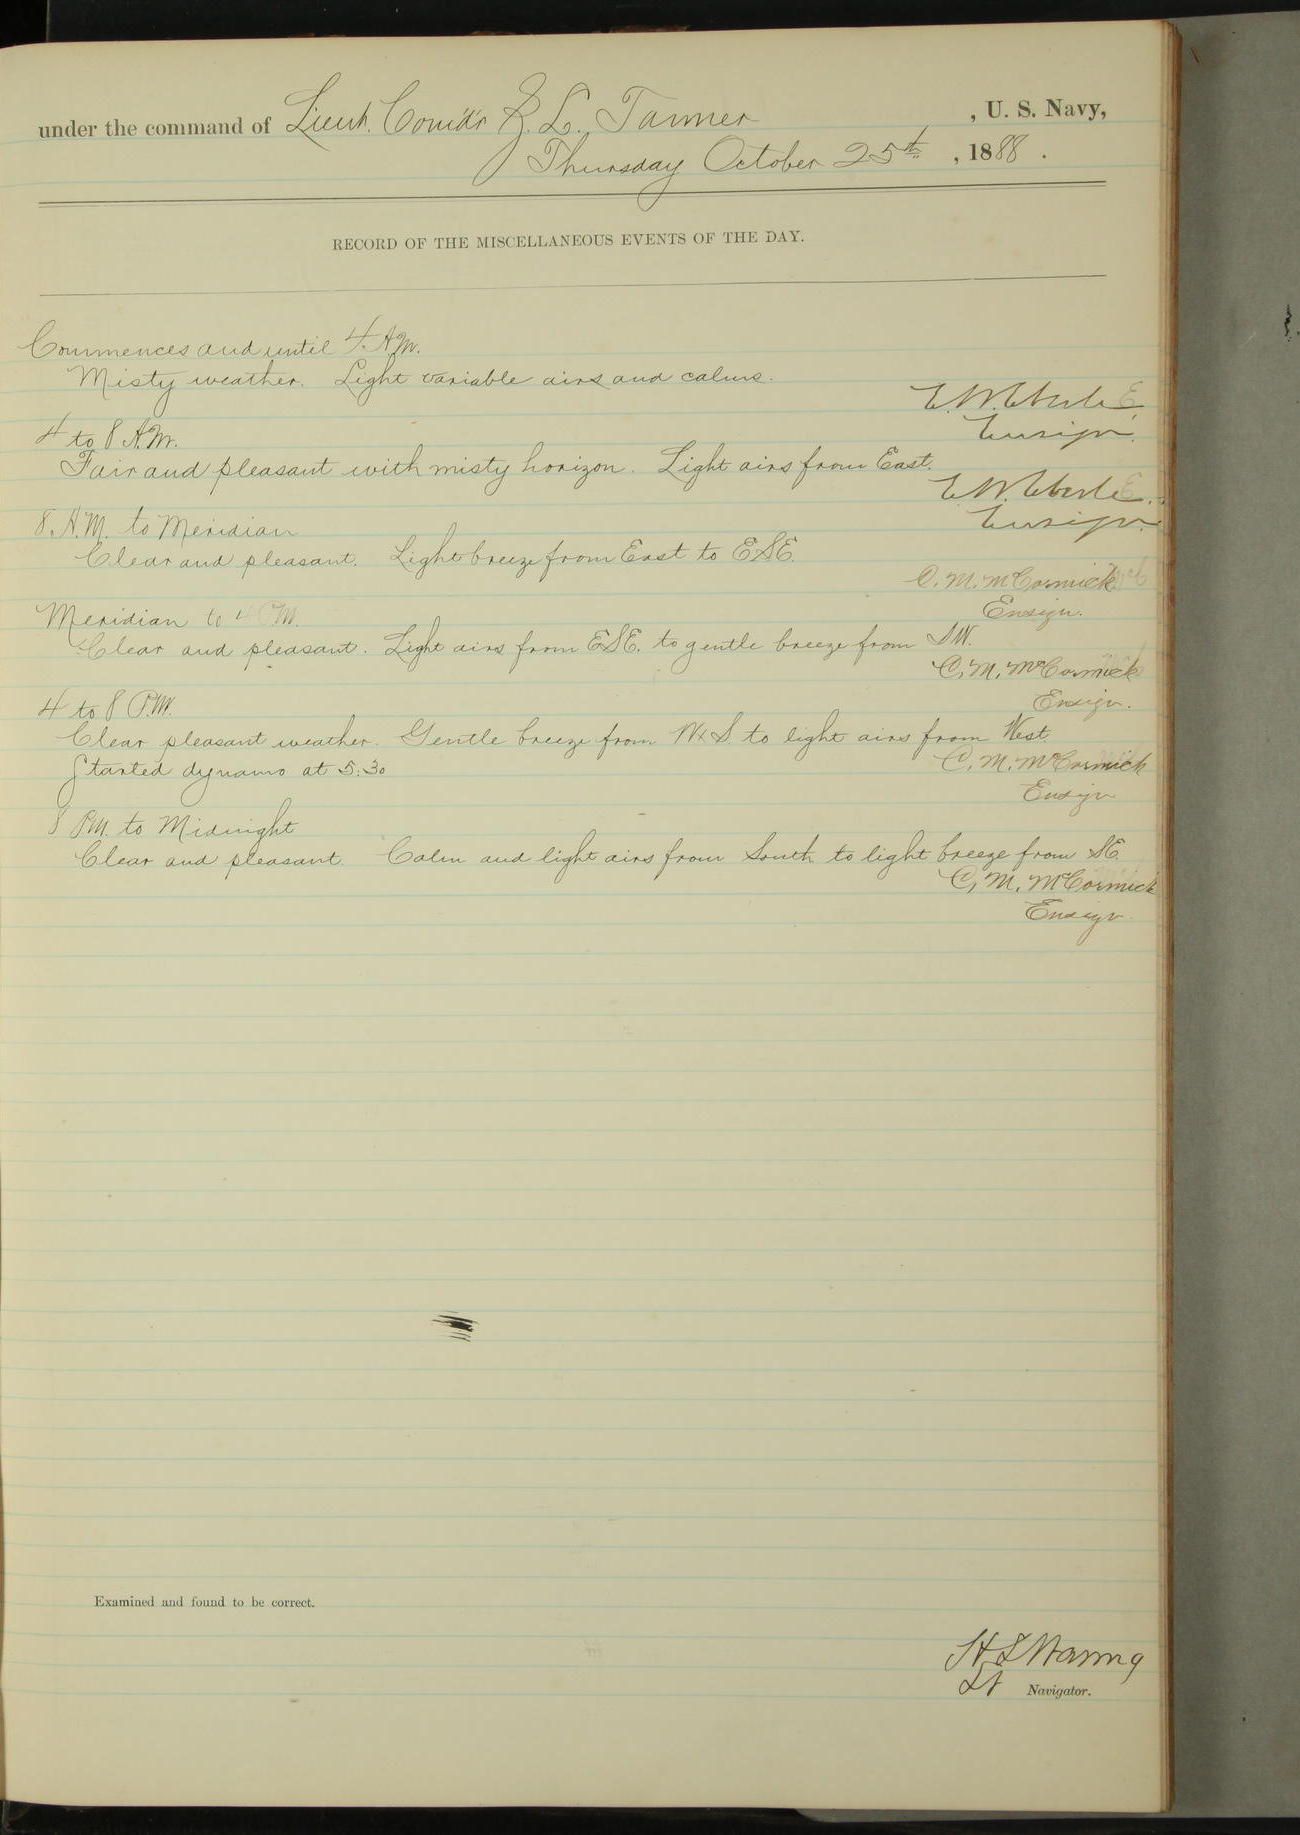 under the command of Lieut. Comd'r Z. L. Tanner, U. S. Navy,
Thursday October 25th, 1888.
RECORD OF THE MISCELLANEOUS EVENTS OF THE DAY.
Commences and until 4 A.M.
Misty weather. Light variable airs and calms.
E. W. Eberle
Ensign.
4 to 8 A.M.
Fair and pleasant with misty horizon. Light airs from East.
E. W. Eberle.
Ensign.
8 A.M. to Meridian
Clear and pleasant. Light breeze from East to ESE.
C. M. McCormick
Ensign.
Meridian to 4 P.M.
Clear and pleasant. Light airs from ESE. to gentle breeze from SW.
C. M. McCormick
Ensign.
4 to 8 P.M.
Clear pleasant weather. Gentle breeze from WxS. to light airs from West
Started dynamo at 5:30
C. M. McCormick
Ensign
8 P.M. to Midnight
Clear and pleasant. Calm and light airs from South to light breeze from SE.
C. M. McCormick
Ensign
Examined and found to be correct.
H S Waring
Lt Navigator.